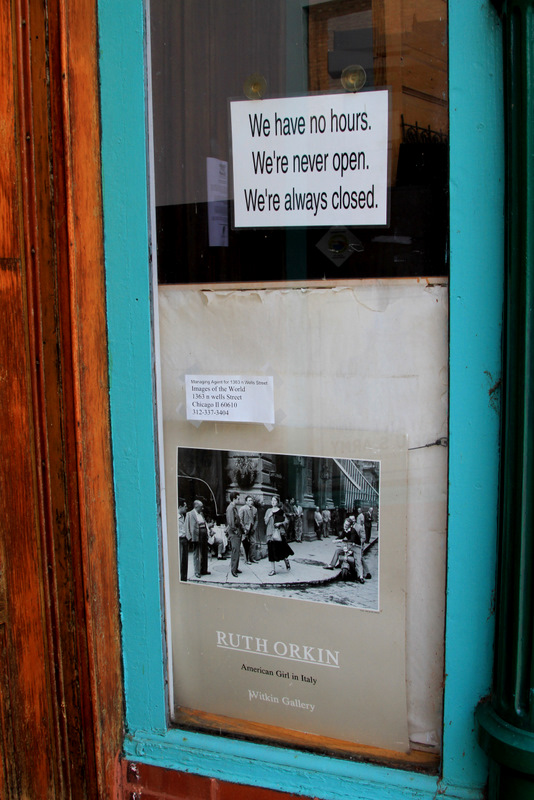 We have no hours.
We're never open.
We're always closed.
Managing Agent for 1363 n Wells Street
Images of the World
1363 n wells Street
Chicago Il 60610
312-337-3404
RUTH ORKIN
American Girl in Italy
Witkin Gallery